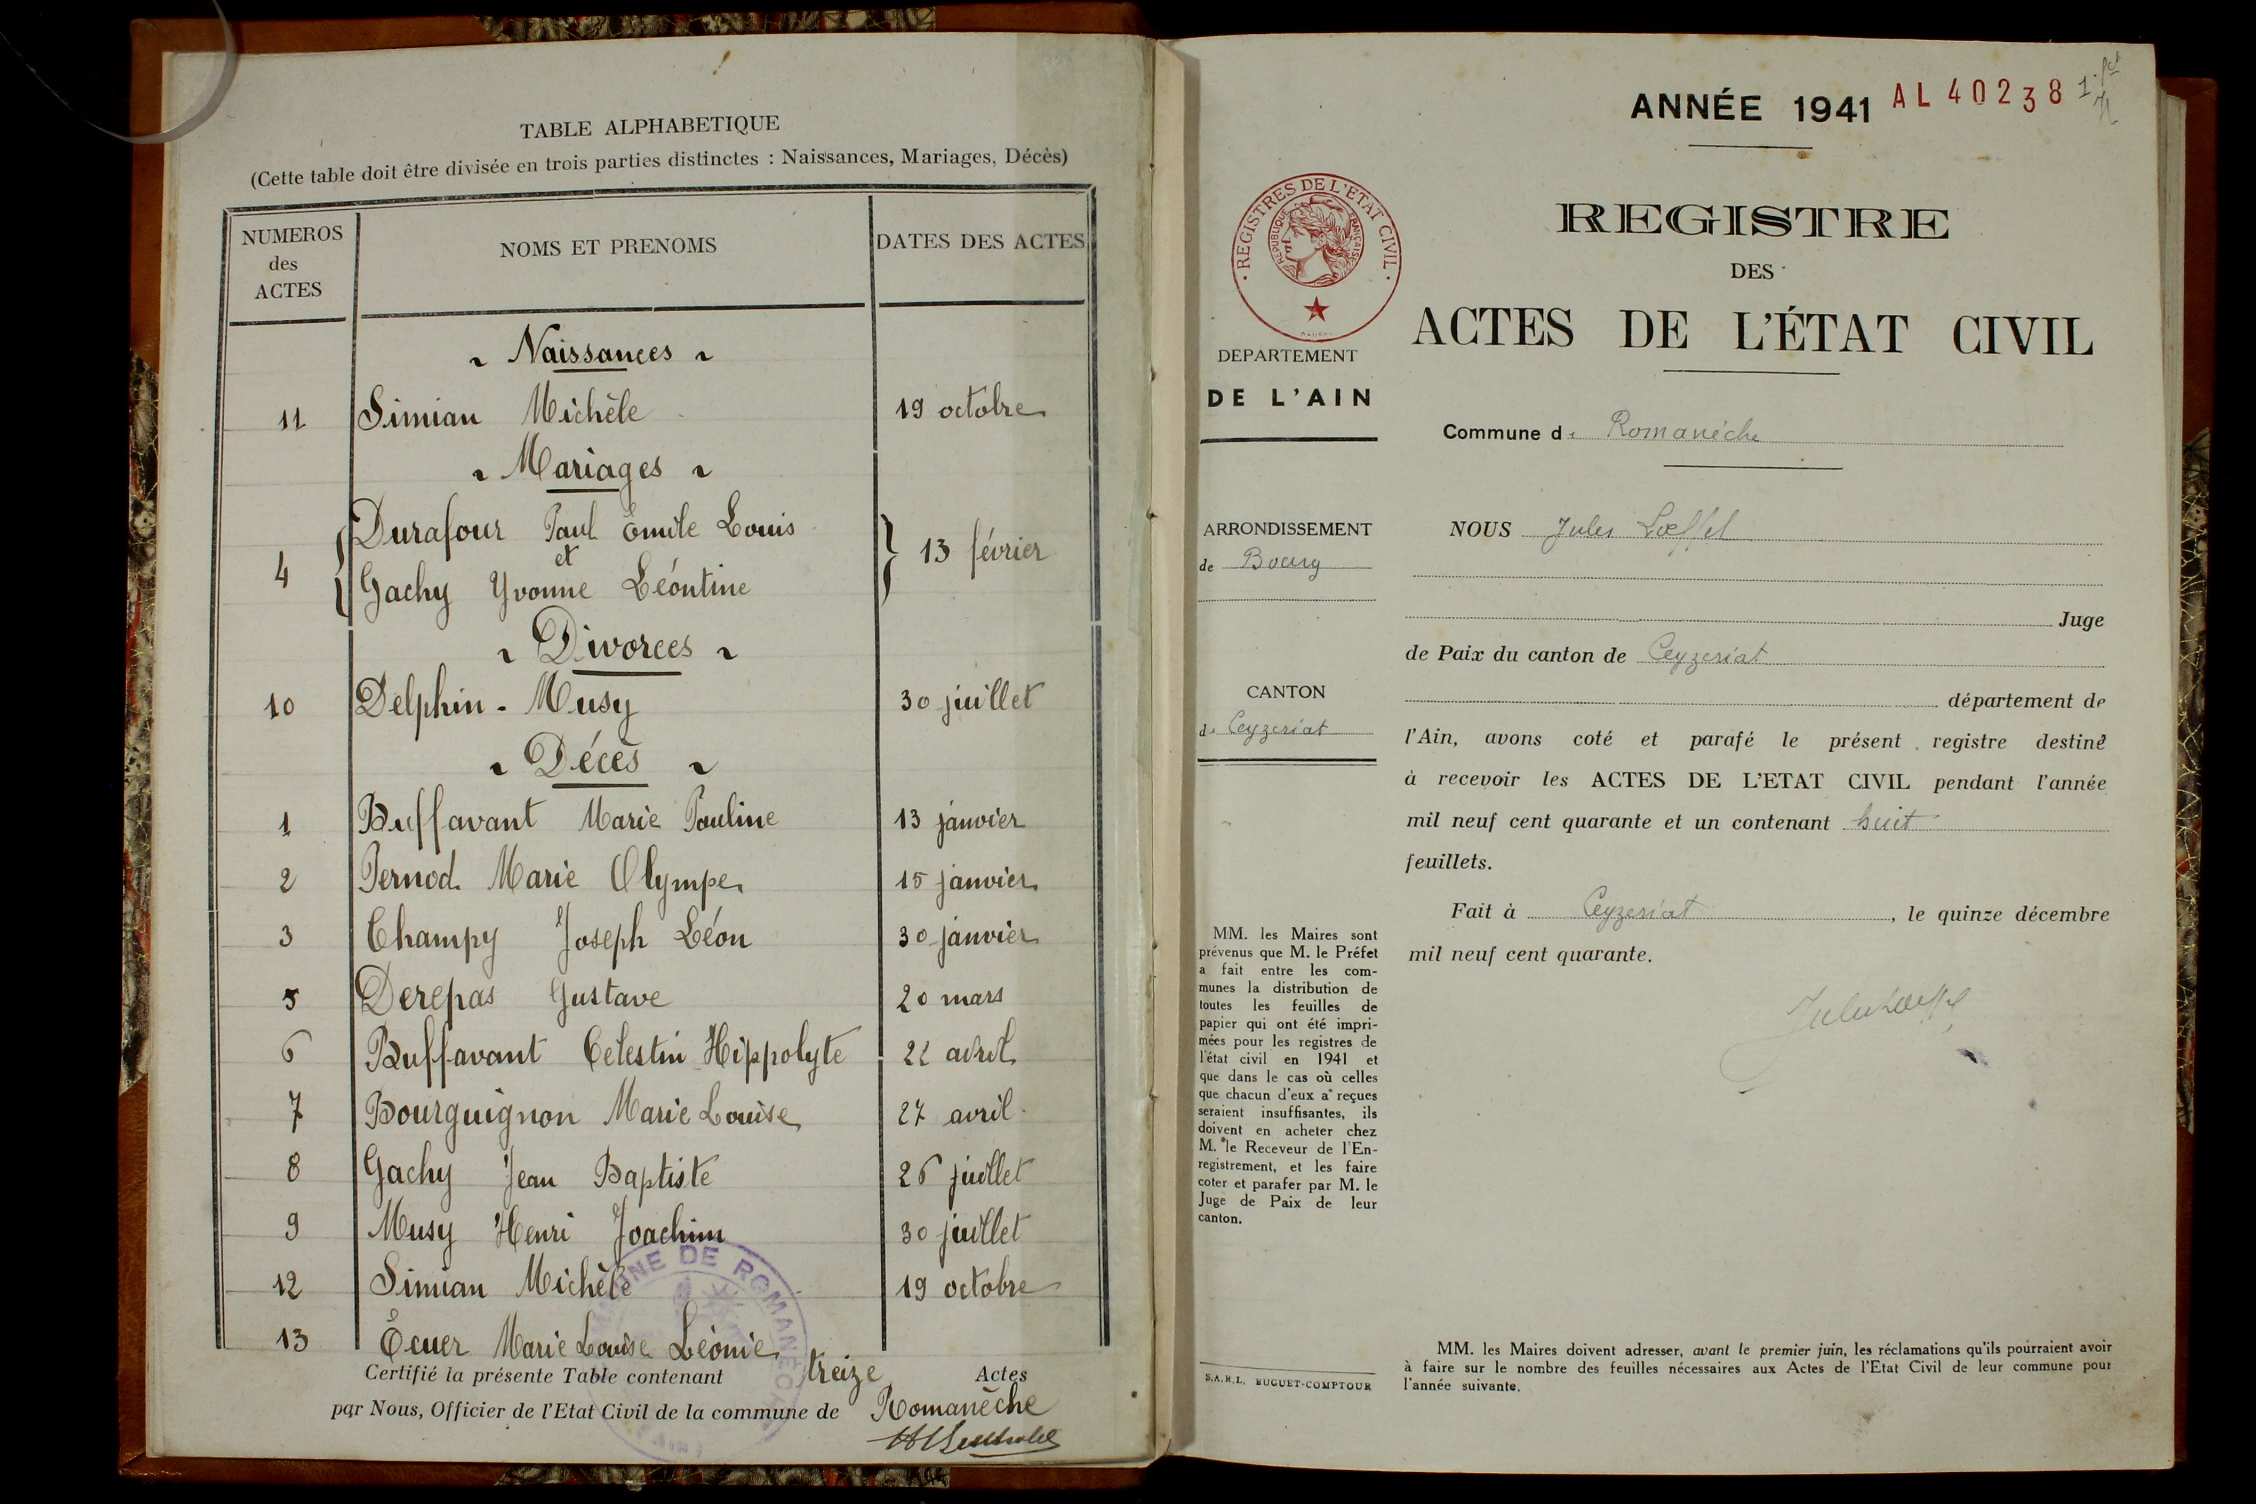 TABLE ALPHABETIQUE
(Cette table doit être divisée en trois parties distinctes : Naissances, Mariages, Décès)
NUMEROS des ACTES
NOMS ET PRENOMS
DATES DES ACTES
Naissances
11 Simian Michèle 19 octobre
Mariages
4 Durafour Paul Émile Louis
et
Gachy Yvonne Léontine 13 février
Divorces
10 Delphin - Musy 30 juillet
Décès
1 Buffavant Marie Pauline 13 janvier
2 Pernod Marie Olympe 15 janvier
3 Champy Joseph Léon 30 janvier
5 Derepas Gustave 20 mars
6 Buffavant Celestin Hippolyte 22 avril
7 Bourguignon Marie Louise 27 avril
8 Gachy Jean Baptiste 26 juillet
9 Musy Henri Joachim 30 juillet
12 Simian Michèle 19 octobre
13 Écuer Marie Louise Léonie
Certifié la présente Table contenant treize Actes
par Nous, Officier de l'Etat Civil de la commune de Romanèche
COMMUNE DE ROMANÈCHE
ANNÉE 1941 AL 40238
REGISTRES DE L'ETAT CIVIL
REPUBLIQUE FRANÇAISE
DEPARTEMENT
DE L'AIN
ARRONDISSEMENT
de Bourg
CANTON
de Ceyzeriat
MM. les Maires sont
prévenus que M. le Préfet
a fait entre les com-
munes la distribution de
toutes les feuilles de
papier qui ont été impri-
mées pour les registres de
l'état civil en 1941 et
que dans le cas où celles
que chacun d'eux a reçues
seraient insuffisantes, ils
doivent en acheter chez
M. le Receveur de l'En-
registrement, et les faire
coter et parafer par M. le
Juge de Paix de leur
canton.
S.A.R.L. BUGUET-COMPTOUR
REGISTRE
DES
ACTES DE L'ÉTAT CIVIL
Commune de Romanèche
NOUS Jules Lœffel
Juge
de Paix du canton de Ceyzeriat
département de
l'Ain, avons coté et parafé le présent registre destiné
à recevoir les ACTES DE L'ETAT CIVIL pendant l'année
mil neuf cent quarante et un contenant huit
feuillets.
Fait à Ceyzeriat, le quinze décembre
mil neuf cent quarante.
Jules Lœffel
MM. les Maires doivent adresser, avant le premier juin, les réclamations qu'ils pourraient avoir
à faire sur le nombre des feuilles nécessaires aux Actes de l'Etat Civil de leur commune pour
l'année suivante.